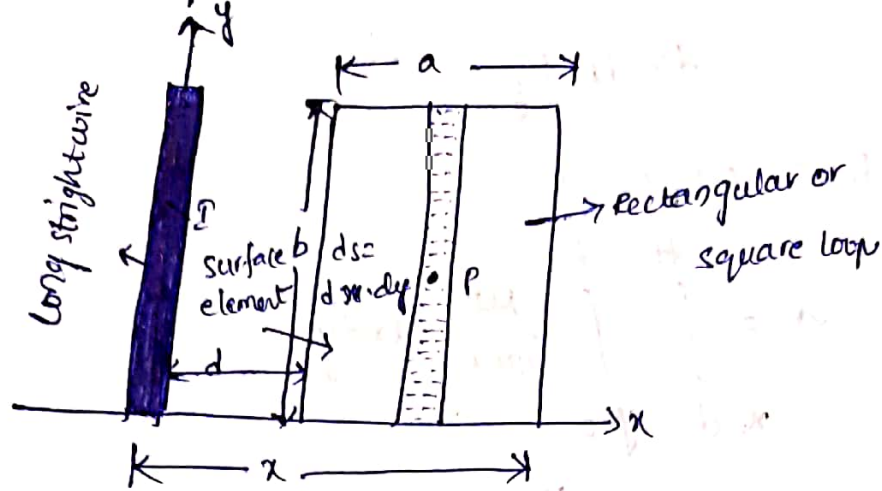 y
a
Long stright wire
I
surface
element
b
ds=
dx.dy
P
Rectangular or
square loop
d
x
x